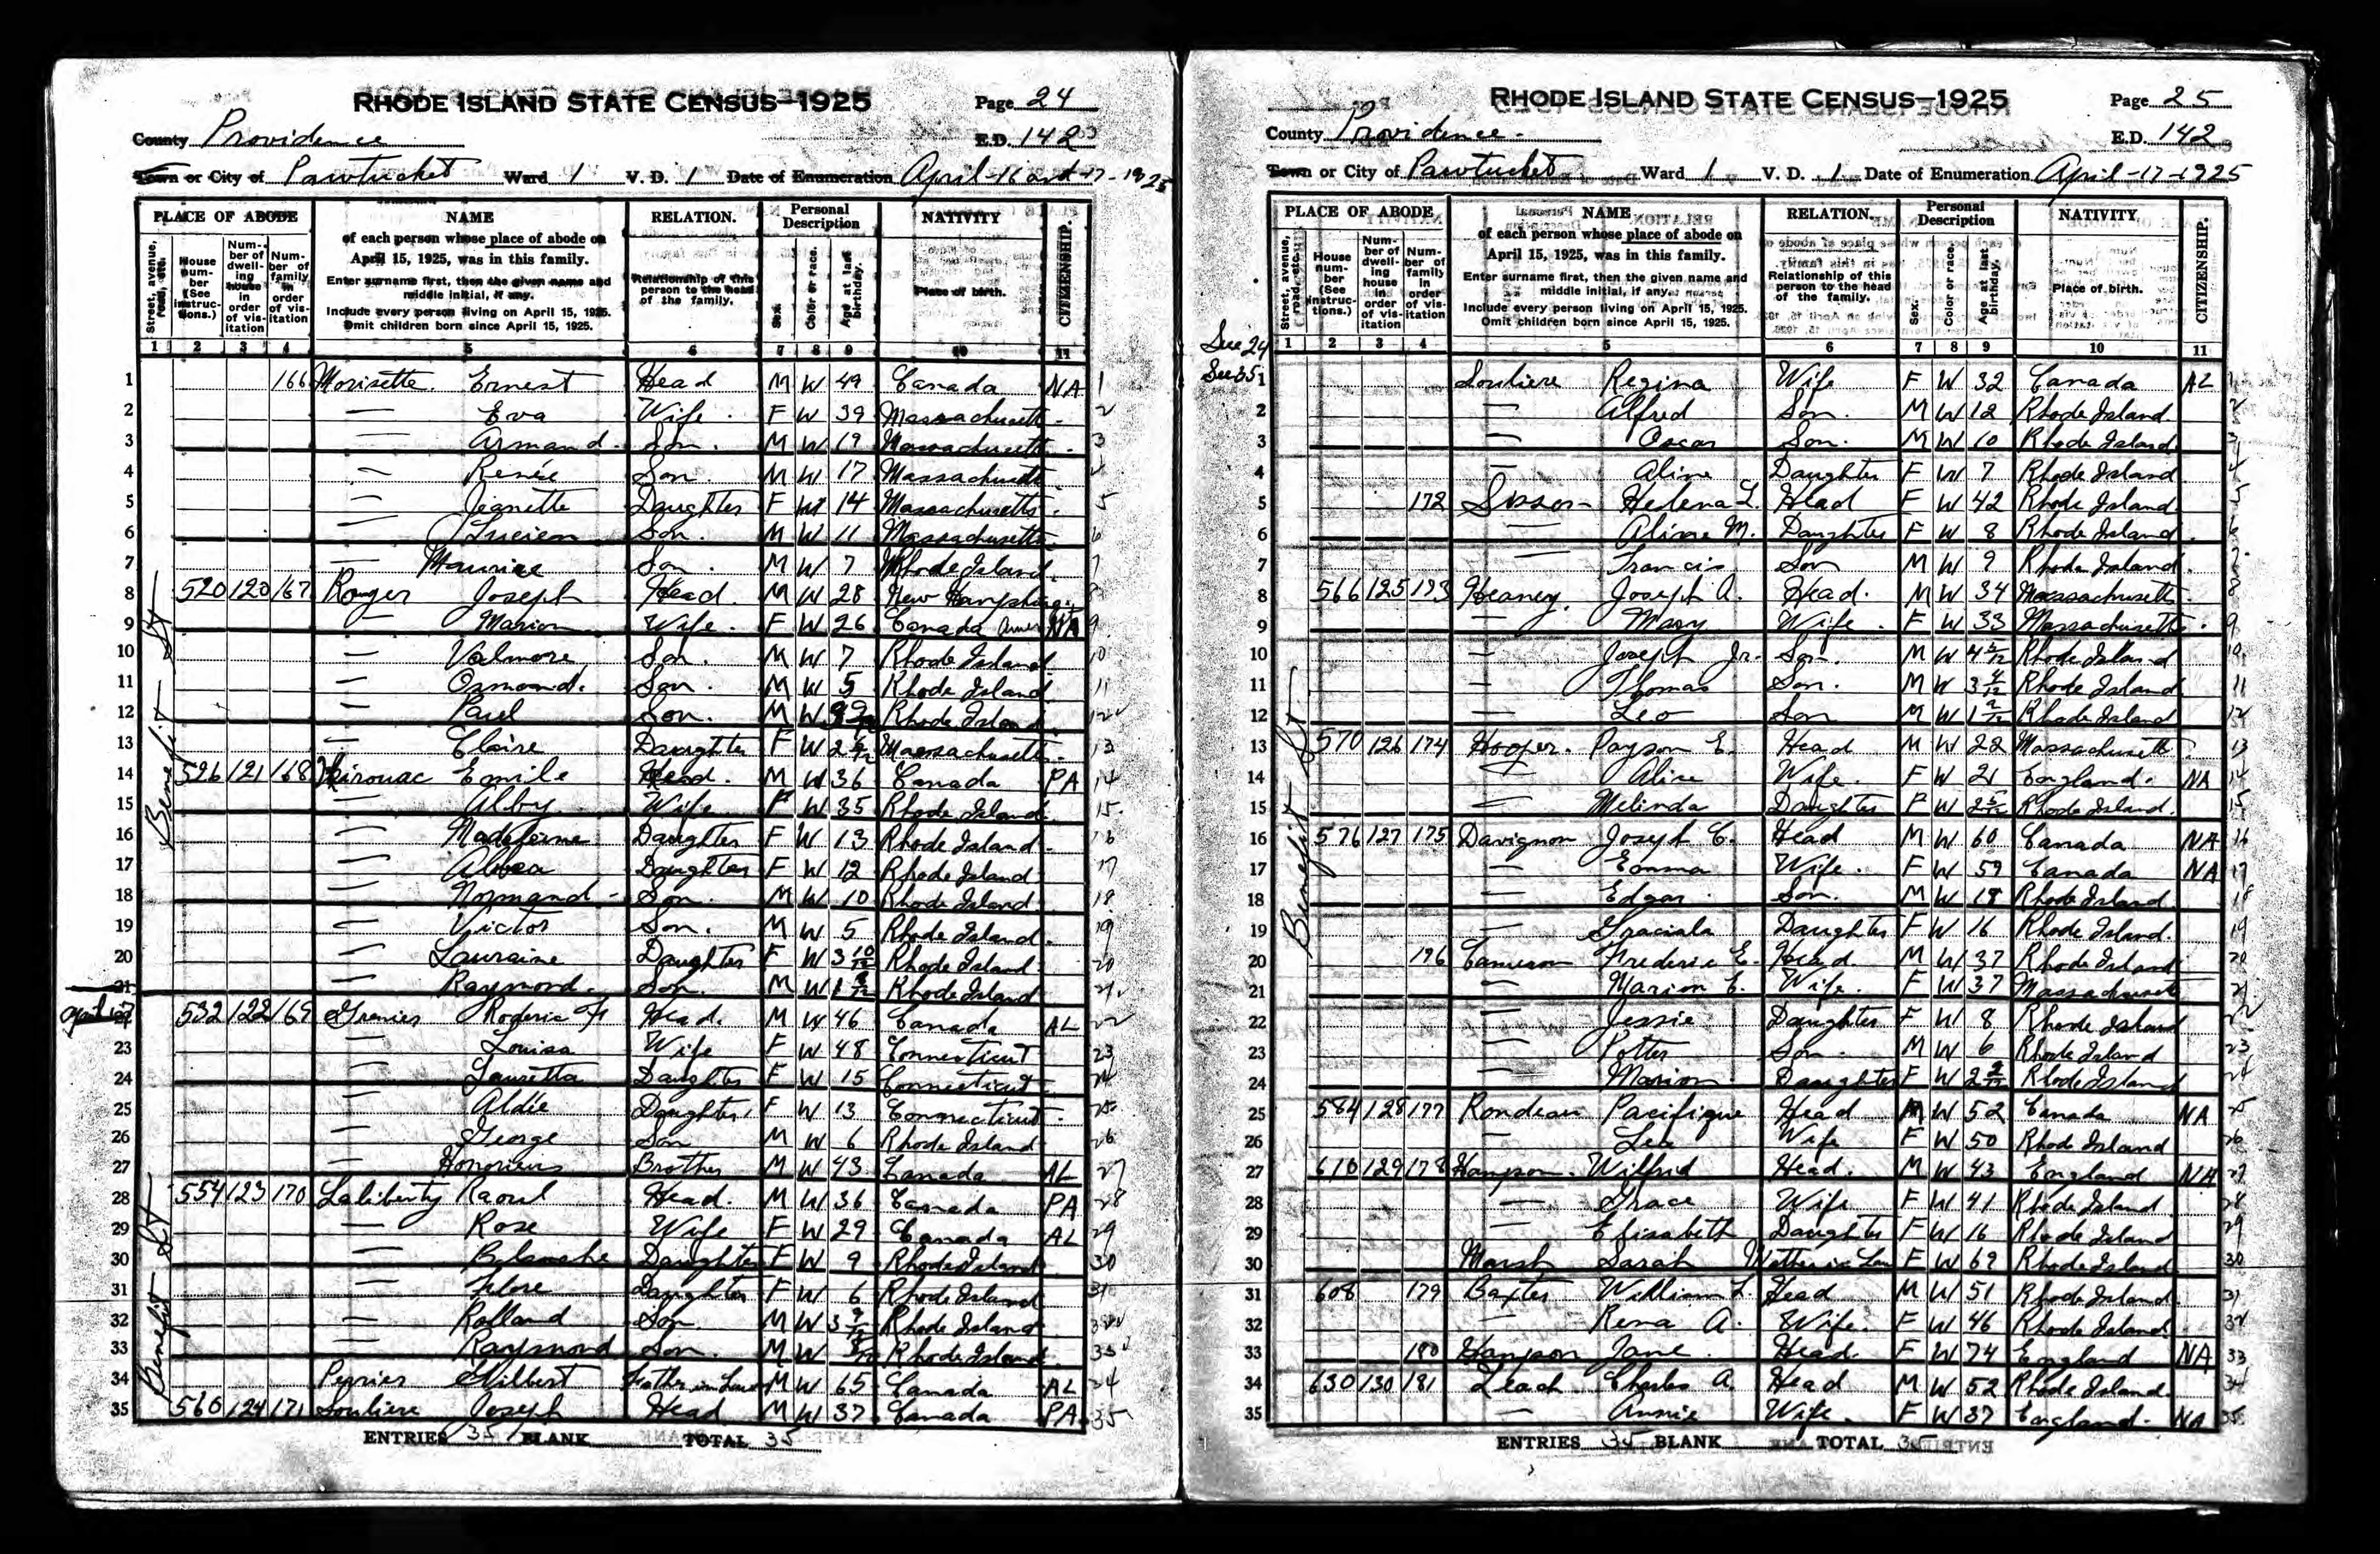 RHODE ISLAND STATE CENSUS—1925
Page 24
County Providence
E.D. 142
Town or City of Pawtucket Ward 1 V. D. 1 Date of Enumeration April-16 and 17-1925
PLACE OF ABODE NAME RELATION. Personal Description NATIVITY CITIZENSHIP.
Street, avenue, road, etc.
House number (See instructions.)
Number of dwelling house in order of visitation
Number of family in order of visitation
of each person whose place of abode on April 15, 1925, was in this family.
Enter surname first, then the given name and middle initial, if any.
Include every person living on April 15, 1925. Omit children born since April 15, 1925.
Relationship of this person to the head of the family.
Sex. Color or race. Age at last birthday.
Place of birth.
1 2 3 4 5 6 7 8 9 10 11
1 166 Morisette Ernest Head M W 49 Canada NA 1
2 — Eva Wife F W 39 Massachusetts 2
3 — Armand Son M W 19 Massachusetts 3
4 — Renée Son M W 17 Massachusetts 4
5 — Jeanette Daughter F W 14 Massachusetts 5
6 — Lucien Son M W 11 Massachusetts 6
7 — Maurice Son M W 7 Rhode Island 7
8 520 120 167 Roger Joseph Head M W 28 New Hampshire 8
9 — Marion Wife F W 26 Canada NA 9
10 — Valmore Son M W 7 Rhode Island 10
11 — Osmond Son M W 5 Rhode Island 11
12 — Paul Son M W Rhode Island 12
13 — Claire Daughter F W 2 Massachusetts 13
14 526 121 168 Kirouac Emile Head M W 36 Canada PA 14
15 — Alby Wife F W 35 Rhode Island 15
16 — Madeleine Daughter F W 13 Rhode Island 16
17 — Daughter F W 12 Rhode Island 17
18 — Normand Son M W 10 Rhode Island 18
19 — Victor Son M W 5 Rhode Island 19
20 — Lauraine Daughter F W 3 10/12 Rhode Island 20
21 — Raymond Son M W 1 Rhode Island 21
April 17
22 532 122 169 Grenier Roderic Head M W 46 Canada AL 22
23 — Louisa Wife F W 48 Connecticut 23
24 — Lauretta Daughter F W 15 Connecticut 24
25 — Aldie Daughter F W 13 Connecticut 25
26 — George Son M W 6 Rhode Island 26
27 — Honorius Brother M W 43 Canada AL 27
28 554 123 170 Laliberty Raoul Head M W 36 Canada PA 28
29 — Rose Wife F W 29 Canada AL 29
30 — Blanche Daughter F W 9 Rhode Island 30
31 — Flore Daughter F W 6 Rhode Island 31
32 — Rolland Son M W 3 Rhode Island 32
33 — Raymond Son M W Rhode Island 33
34 Perrier Gilbert Father in Law M W 65 Canada AL 34
35 560 124 171 Souliere Joseph Head M W 37 Canada PA 35
Benefit St
Benefit St
ENTRIES 35 BLANK TOTAL 35
RHODE ISLAND STATE CENSUS—1925
Page 25
County Providence
E.D. 142
Town or City of Pawtucket Ward 1 V. D. 1 Date of Enumeration April-17-1925
PLACE OF ABODE NAME RELATION. Personal Description NATIVITY CITIZENSHIP.
Street, avenue, road, etc.
House number (See instructions.)
Number of dwelling house in order of visitation
Number of family in order of visitation
of each person whose place of abode on April 15, 1925, was in this family.
Enter surname first, then the given name and middle initial, if any.
Include every person living on April 15, 1925. Omit children born since April 15, 1925.
Relationship of this person to the head of the family.
Sex. Color or race. Age at last birthday.
Place of birth.
1 2 3 4 5 6 7 8 9 10 11
See 24
See 35
1 Souliere Regina Wife F W 32 Canada AL 1
2 — Alfred Son M W 12 Rhode Island 2
3 — Oscar Son M W 10 Rhode Island 3
4 — Aline Daughter F W 7 Rhode Island 4
5 172 Sisson Helena L. Head F W 42 Rhode Island 5
6 — Aline M. Daughter F W 8 Rhode Island 6
7 — Francis Son M W 9 Rhode Island 7
8 566 125 173 Heaney Joseph A. Head M W 34 Massachusetts 8
9 — Mary Wife F W 33 Massachusetts 9
10 — Joseph Jr. Son M W 4 Rhode Island 10
11 — Thomas Son M W 3 Rhode Island 11
12 — Leo Son M W 1 Rhode Island 12
13 570 126 174 Hooper Payson E. Head M W 22 Massachusetts 13
14 — Alice Wife F W 21 England NA 14
15 — Melinda Daughter F W 2 Rhode Island 15
16 576 127 175 Davignon Joseph C. Head M W 60 Canada NA 16
17 — Emma Wife F W 59 Canada NA 17
18 — Edgar Son M W 18 Rhode Island 18
19 — Graciala Daughter F W 16 Rhode Island 19
20 176 Cameron Frederic E. Head M W 37 Rhode Island 20
21 — Marion E. Wife F W 37 Massachusetts 21
22 — Jessie Daughter F W 8 Rhode Island 22
23 — Potter Son M W 6 Rhode Island 23
24 — Marion Daughter F W 2 Rhode Island 24
25 584 128 177 Rondeau Pacifique Head M W 52 Canada NA 25
26 — Lea Wife F W 50 Rhode Island 26
27 610 129 178 Hampson Wilfrid Head M W 43 England NA 27
28 — Grace Wife F W 41 Rhode Island 28
29 — Elisabeth Daughter F W 16 Rhode Island 29
30 Marsh Sarah Mother in Law F W 69 Rhode Island 30
31 608 179 Baxter William L. Head M W 51 Rhode Island 31
32 — Rena A. Wife F W 46 Rhode Island 32
33 180 Hampson Jane Head F W 74 England NA 33
34 630 130 181 Leach Charles A. Head M W 52 Rhode Island 34
35 — Annie Wife F W 37 England NA 35
Benefit St
ENTRIES 35 BLANK TOTAL 35